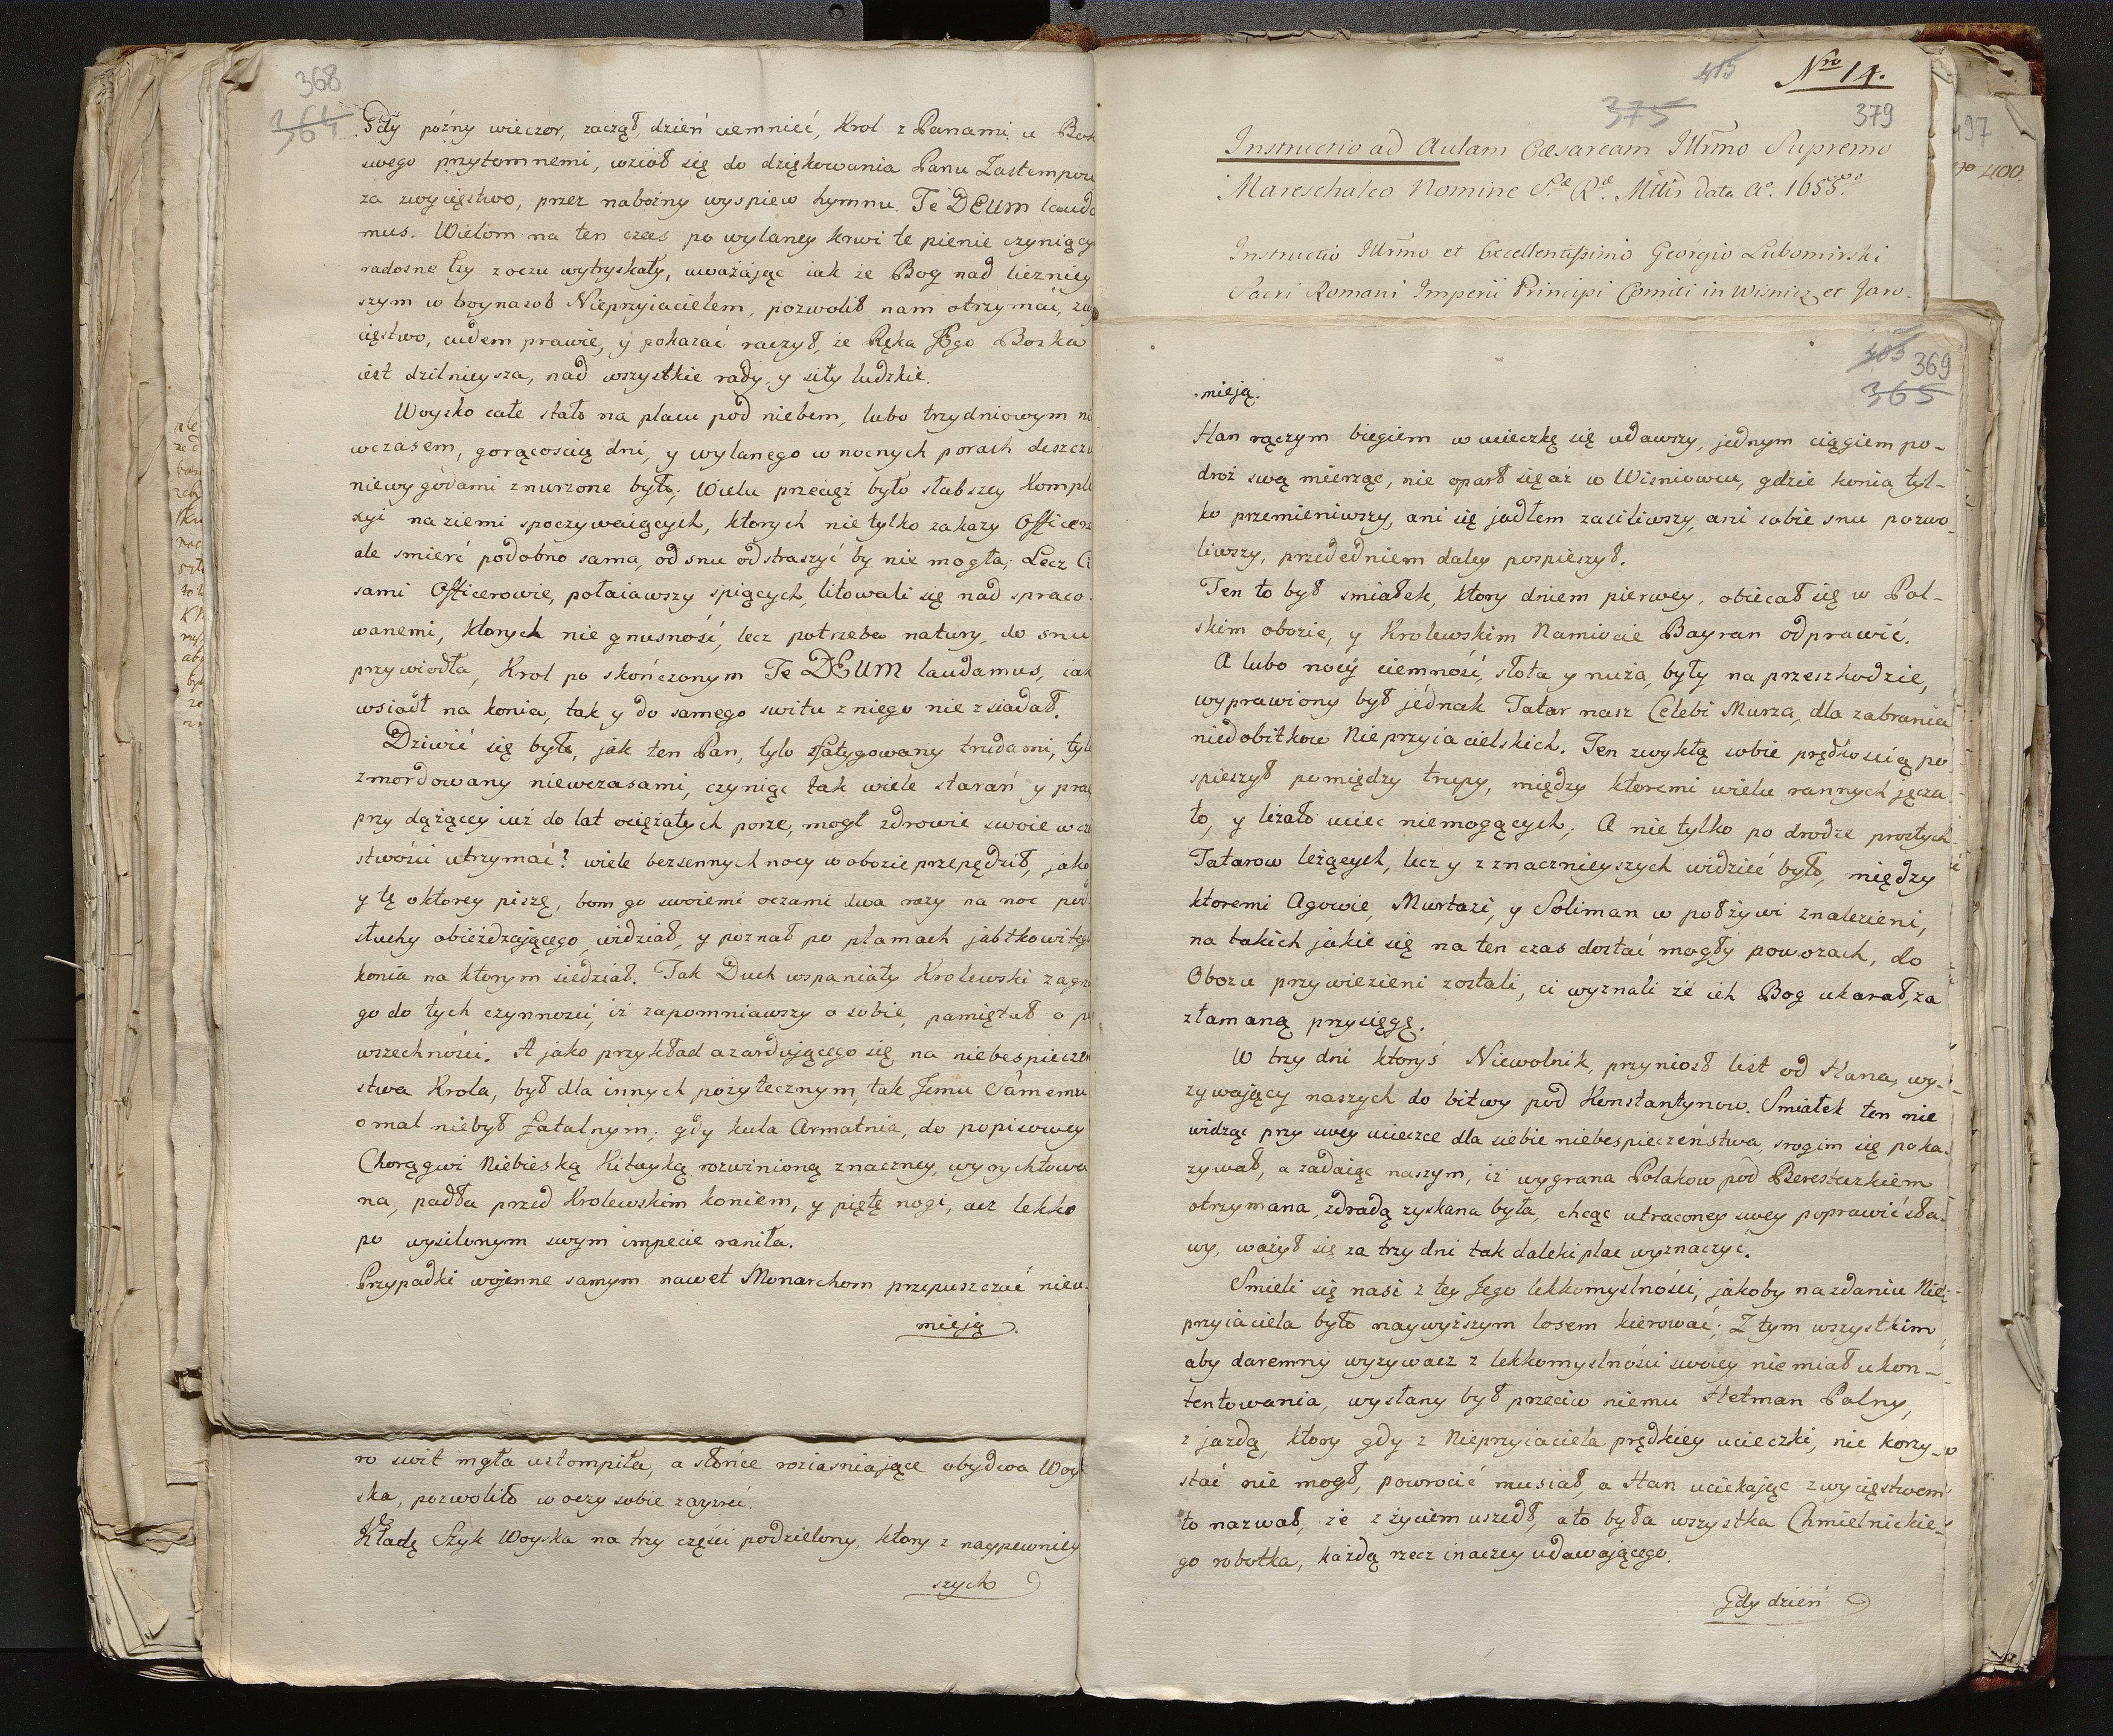 368
364
Gdy poźny wieczor, zaczął, dzień ciemnieć, Krol z Panami u Bok
swego przytomnemi, wziół się do dziękowania Panu Zastempow
za zwycięstwo, przez nabożny wyspiew hymnu. Te DEUM lauda
mus. Wielom na ten czas po wylaney krwi te pienie czyniący
radosne łzy z oczu wytryskały, uważając iak że Bog nad liczniey
szym w troynasob Nieprzyiacielem, pozwolił nam otrzymać, zwy
cięstwo, cudem prawie, y pokazać raczył, że Ręka Jego Boska
iest dzilnieysza, nad wszystkie rady y siły ludzkie.
Woysko całe stało na placu pod niebem, lubo trzydniowym nie
wczasem, gorącoscią dni, y wylanego w nocnych porach deszczu
niewygodami znurzone było; Wielu przecięż było słabszey Komple
xyi na ziemi spoczywaiących, ktorych nie tylko zakazy Officer
ale smierć podobno sama, od snu odstraszyć by nie mogła; Lecz Ci
sami Officerowie, połaiawszy spiących, litowali się nad spraco-
wanemi, ktorych nie gnusność, lecz potrzeba natury, do snu
przywiodła, Krol po skończonym Te DEUM laudamus, iak
wsiadł na konia, tak y do samego switu z niego nie zsiadał.
Dziwić się było, jak ten Pan, tylo sfatygowany trudami, tyle
zmordowany niewczasami, czyniąc tak wiele starań y prac
przy dążącey iuż do lat ociężałych porze, mogł zdrowie swoie w cze
stwości utrzymać? wiele bezsennych nocy w obozie przepędził, jako
y tę o ktorey piszę, bom go swoiemi oczami dwa razy na noc pod
słuchy obieżdzającego widział, y poznał po plamach jabłkowitego
konia na ktorym siedział. Tak Duch wspaniały Krolewski zagrz
go do tych czynności, iż zapomniawszy o sobie, pamiętał o po
wszechności. A jako przykład azardującego się na niebespieczeń
stwa Krola, był dla innych pożytecznym, tak Jemu Samemu
omal niebył fatalnym; gdy kula Armatnia, do popisowey
Chorągwi Niebieską Kitayką rozwinioną znaczney, wyrychtowa
na, padła przed Krolewskim koniem, y piętę nogi, acz lekko
po wysilonym swym impecie raniła.
Przypadki wojenne samym nawet Monarchom przepuszczać nieu-
mieją.
ro swit mgła ustompiła, a słońce roziasniające obydwa Woy
ska, pozwoliło w oczy sobie zayzreć.
Kładę Szyk Woyska na trzy części podzielony, ktory z naypewniey
szych
415
Nro 14.
375
379
Instructio ad Aulam Cæsaream Illrmo Supremo
Mareschalco Nomine S.æ R.æ Mttis data Ao. 1655.
Instructio Illrmo et Excellentissimo Georgio Lubomirski
Sacri Romani Imperii Principi Comiti in Wisnicz et Jaro-
397
400.
369
365
mieją.
Han rączym biegiem w ucieczkę się udawszy, jednym ciągiem po-
droż swą mierząc, nie oparł się aż w Wisniowcu, gdzie konia tyl-
ko przemieniwszy, ani się jadłem zasiliwszy, ani sobie snu pozwo
liwszy, przededniem daley pospieszył.
Ten to był smiałek, ktory dniem pierwey, obiecał się w Pol-
skim obozie, y Krolewskim Namiocie Bayran odprawić.
A lubo nocy ciemność, słota y nuża, były na przeszkodzie,
wyprawiony był jednak Tatar nasz Celebi Murza, dla zabrania
niedobitkow Nieprzyiacielskich. Ten zwykłą sobie prędkoscią po
spieszył pomiędzy trupy, między ktoremi wielu rannych jęcza
ło, y leżało uciec niemogących; A nie tylko po drodze prostych
Tatarow leżących, lecz y z znacznieyszych widzieć było, między
ktoremi Agowie, Murtazi, y Soliman w połżywi znalezieni,
na takich jakie się na ten czas dostać mogły powozach, do
Obozu przywiezieni zostali, ci wyznali że ich Bog ukarał, za
złamaną przysięgę.
W trzy dni ktoryś Niewolnik, przyniosł list od Hana, wy-
zywający naszych do bitwy pod Konstantynow. Smiałek ten nie
widząc przy swey ucieczce dla siebie niebespieczeństwa, srogim się poka-
zywał, a zadaiąc naszym, iż wygrana Polakow pod Beresteczkiem
otrzymana, zdradą zyskana była, chcąc utraconey swey poprawić sła-
wy, ważył się za trzy dni tak daleki plac wyznaczyć.
Smieli się nasi z tey Jego lekkomyslności, jakoby na zdaniu Nie-
przyiaciela było naywyższym losem kierować; Z tym wszystkim
aby daremny wyzywacz z lekkomyslności swoiey nie miał ukon-
tentowania, wysłany był przeciw niemu Hetman Polny,
z jazdą, ktory gdy z Nieprzyiaciela prędkiey ucieczki, nie korzy-
stać nie mogł, powrocić musiał, a Han uciekając zwycięstwem
to nazwał, że z życiem uszedł, a to była wszystka Chmielnickie-
go robotka, każdą rzecz inaczey udawającego.
Gdy dzień